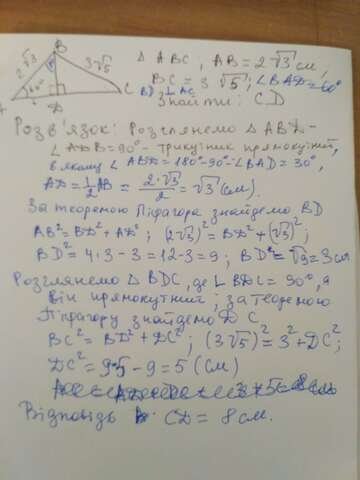 B
2√3
3√5
60°
A
D
C
Δ ABC; AB = 2√3 см;
BC = 3√5; ∠BAD = 60°
BD ⊥ AC
Знайти: CD
Розв'язок: Розглянемо Δ ABD -
∠ADB = 90° - трикутник прямокутний,
в якому ∠ABD = 180° - 90° - ∠BAD = 30°,
AD = 1/2 AB = 2·√3/2 = √3 (см).
За теоремою Піфагора знайдемо BD
AB² = BD² + AD²; (2√3)² = BD² + (√3)²;
BD² = 4·3 - 3 = 12 - 3 = 9; BD = √9 = 3 см
Розглянемо Δ BDC, де ∠BDC = 90°,
він прямокутний; за теоремою
Піфагору знайдемо DC
BC² = BD² + DC²; (3√5)² = 3² + DC²;
DC² = 9·5 - 9 = 5 (см)
Відповідь CD = 8 см.